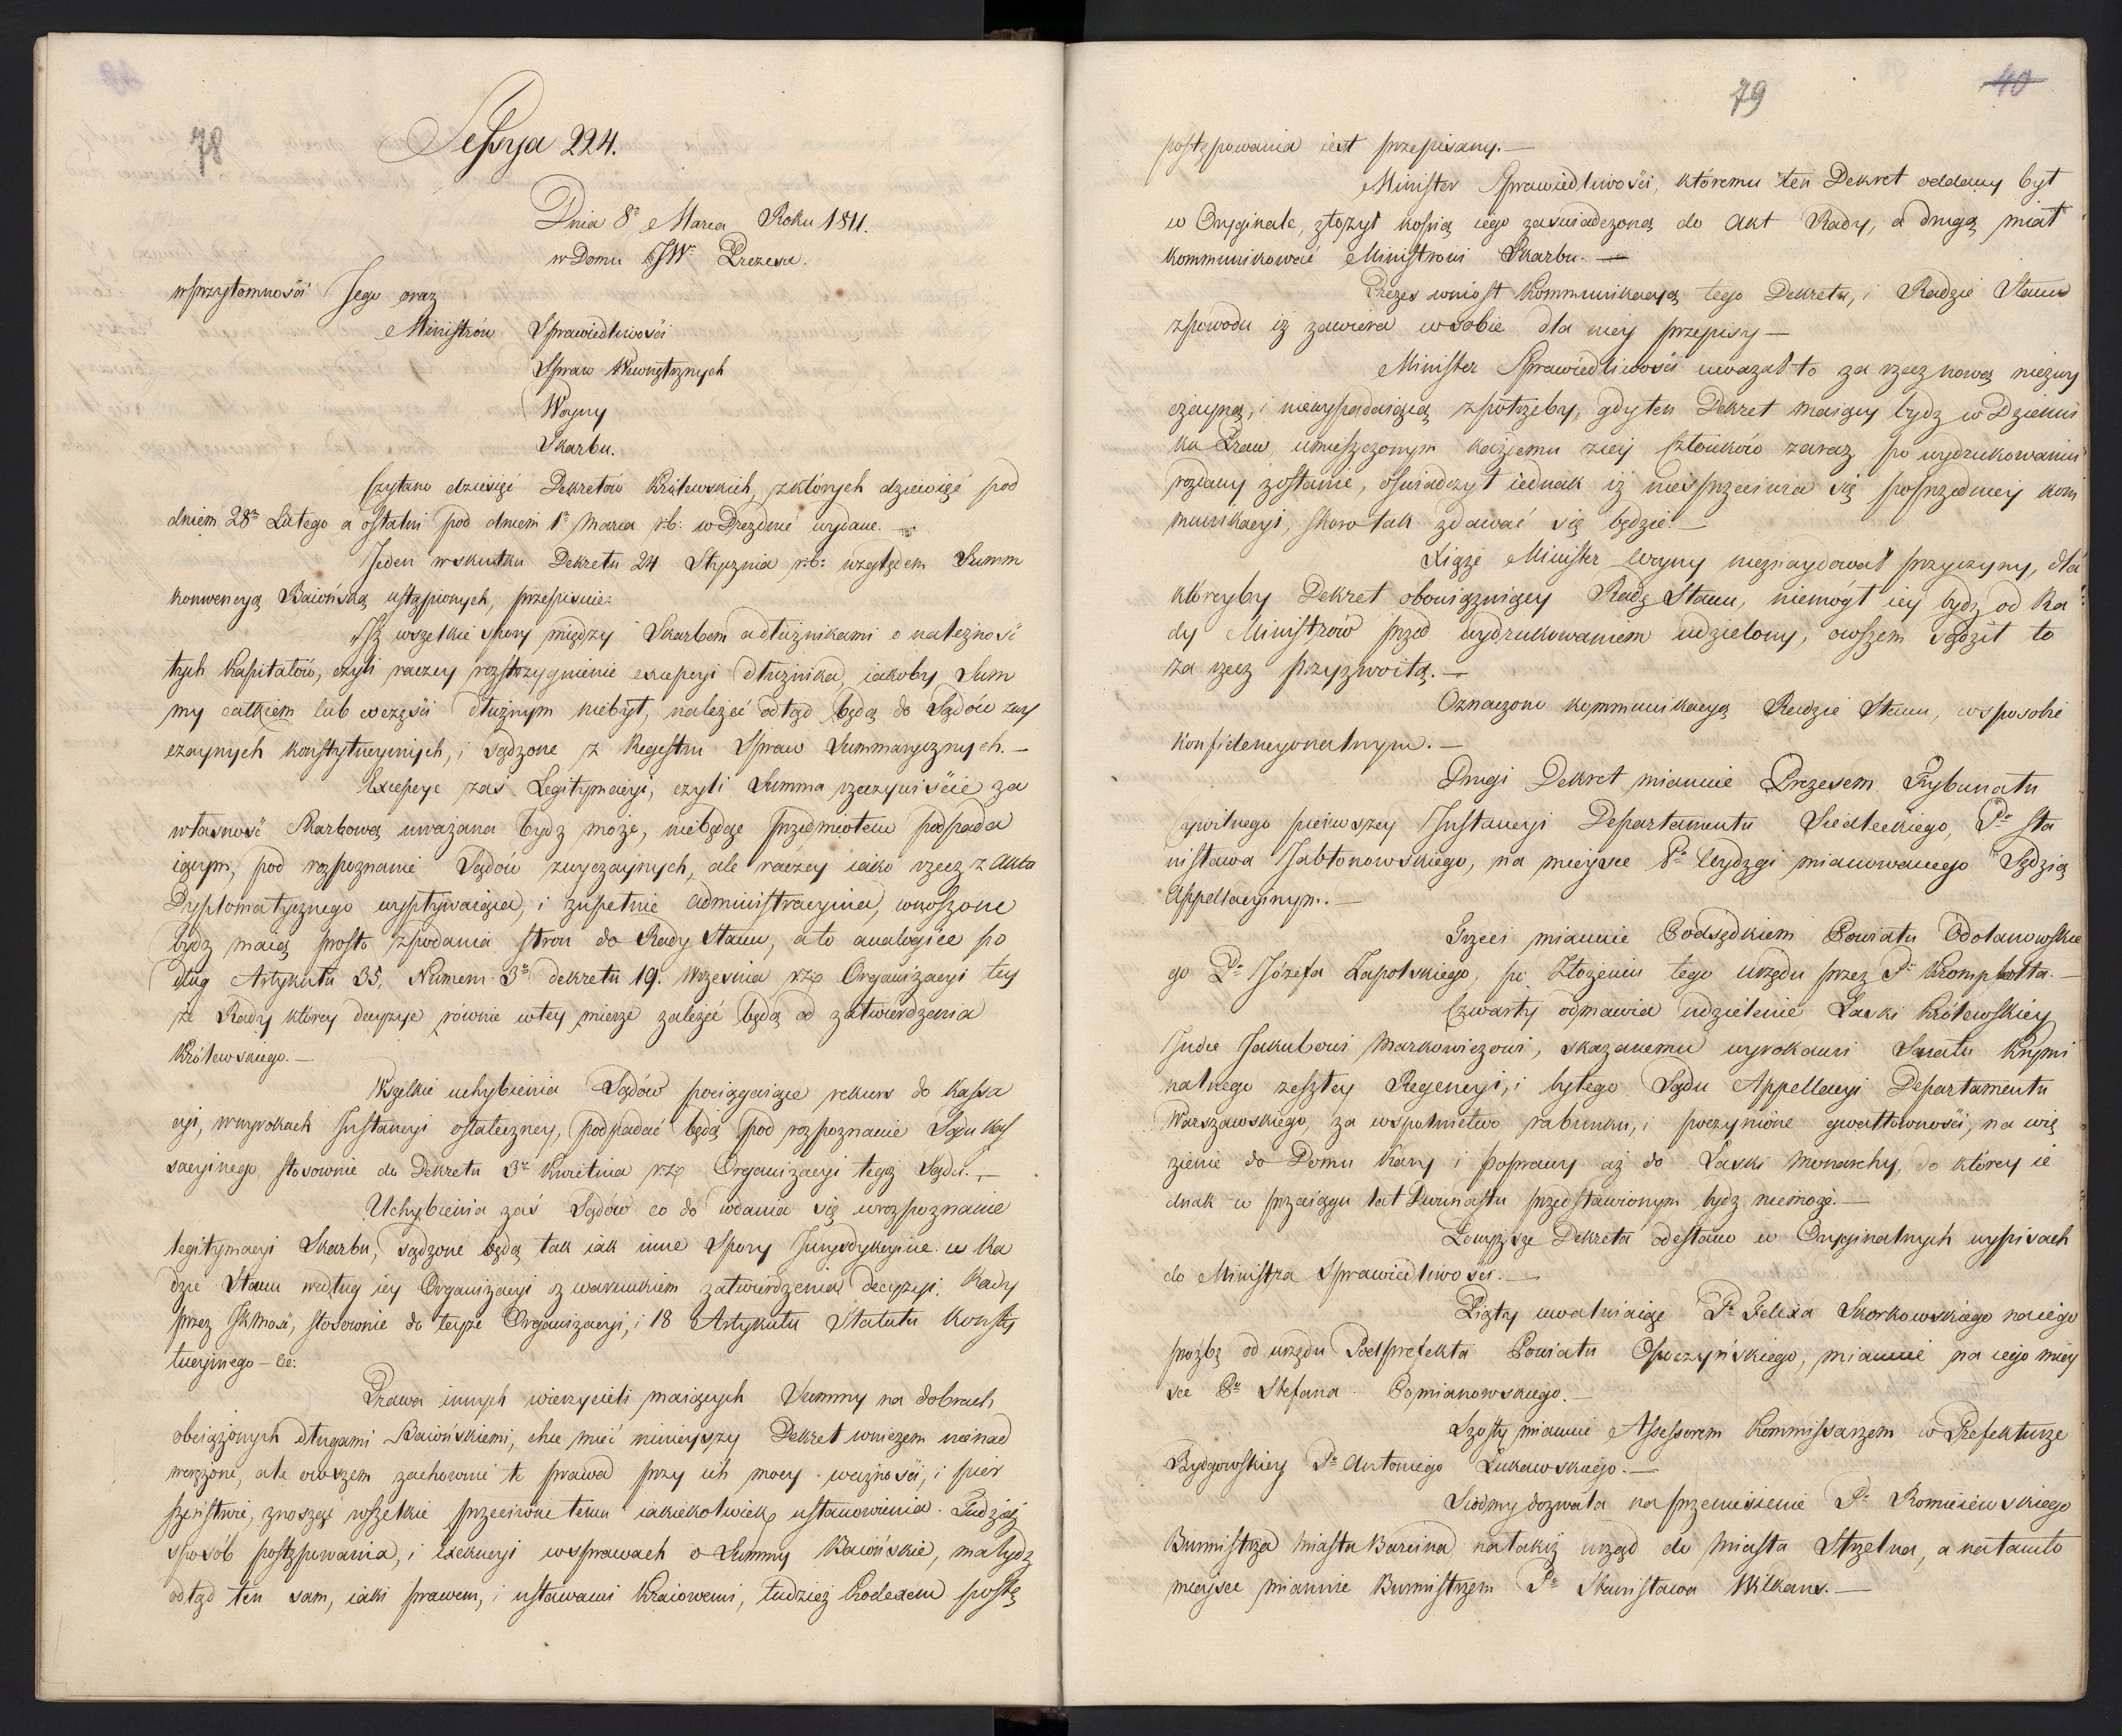 78
Sessyja 224.
Dnia 8º Marca Roku 1811.
w Domu JWº Prezesa.
w przytomności Jego oraz
Ministrów Sprawiedliwości
Spraw Wewnętrznych
Woyny
Skarbu.
Czytano dziesięć Dekretów Królewskich, z których dziewięć pod
dniem 28º Lutego a ostatni pod dniem 1º Marca r:b: w Dreznie wydane.—
Jeden w skutku Dekretu 24 Stycznia r:b: względem Summ
konwencyą Baiońską ustąpionych, przepisuie:
Iż wszelkie spory między Skarbem a dłużnikami o należność
tych kapitałów, czyli raczey rozstrzygnienie excepcyi dłużnika, iakoby Sum
my całkiem lub w części dłużnym niebył, należeć odtąd będą do Sądów zwy
czaynych konstytucyinych, i sądzone z Regestru Spraw Summarycznych.—
Excepcye zaś Legitymacyi, czyli Summa rzeczywiście za
własność Skarbową uważana bydz może, niebędąc przedmiotem podpada
iącym, pod rozpoznanie Sądów zwyczaynych, ale raczey iako rzecz z Aktu
Dyplomatycznego wypływaiąca, i zupełnie administracyina, wnoszone
bydz maią prosto z podania stron do Rady Stanu, a to analogice po
dług Artykułu 35, Numeru 3º dekretu 19. Września Organizacyi tey
że Rady którey decyzye równie w tey mierze zależeć będą od zatwierdzenia
Królewskiego.—
Wszelkie uchybienia Sądów pociągaiące rekurs do Kassa
cyi, w wyrokach Instancyi ostateczney, podpadać będą pod rozpoznanie Sądu Kas
sacyinego, stosownie do Dekretu 3º Kwietnia Organizacyi tegoż Sądu.—
Uchybienia zaś Sądów co do wdania się w rozpoznanie
legitymacyi Skarbu, sądzone będą tak iak inne Spory Jurysdykcyine w Ra
dzie Stanu według iey Organizacyi z warunkiem zatwierdzenia decyzyi Rady
przez JKMość, stosownie do teyże Organizacyi, i 18 Artykułu Statutu Konsty
tucyinego —
Prawa innych wierzycieli maiących Summy na dobrach,
obciążonych długami Baiońskiemi, chce mieć ninieyszy Dekret w niczem nienad
werężone, ale owszem zachowuie te prawa przy ich mocy ważności, i pier
szeństwie, znosząc wszelkie przeciwne temu iakiekolwiek ustanowienia. Tudzież
sposób postępowania, i exekucyi w sprawach o Summy Baiońskie, ma bydz
odtąd ten sam, iaki prawem, i ustawami Kraiowemi, tudzież Kodexem postę
79
40
postępowania iest przepisany.—
Minister Sprawiedliwości, któremu ten Dekret oddany był
w Oryginale, złożył kopią iego zaświadczoną do Akt Rady, a drugą miał
kommunikować Ministrowi Skarbu.—
Prezes wniósł kommunikacyą tego Dekretu, i Radzie Stanu
z powodu iż zawiera w sobie dla niey przepisy—
Minister Sprawiedliwości uważał to za rzecz nową niezwy
czayną, i niewypadaiącą z potrzeby, gdy ten Dekret maiąc bydz w Dzienni
ku Praw umieszczonym każdemu z iey członków zaraz po wydrukowaniu
rozdany zostanie, oświadczył iednak iż niesprzeciwia się poprzedniey kom
munikacyi, skoro tak zdawać się będzie.—
Xiąże Minister Woyny nieznaydował przyczyny, dla
któreyby Dekret obowiązuiący Radę Stanu, niemógł iey bydz od Ra
dy Ministrów przed wydrukowaniem udzielony, owszem sądził to
za rzecz przyzwoitą.—
Oznaczono kommunikacyą Radzie Stanu, w sposobie
konfidencyonalnym.—
Drugi Dekret mianuie Prezesem Trybunału
cywilnego pierwszey Instancyi Departamentu Siedleckiego, Pº Sta
nisława Jabłonowskiego, na mieysce Pº Wydzgi mianowanego Sędzią
Appellacyinym.—
Trzeci mianuie Podsędkiem Powiatu Odolanowskie
go Pº Józefa Zapolskiego, po złożeniu tego urzędu przez Pº Krompholtta.—
Czwarty odmawia udzielenie Łaski Królewskiey
Judce Jakubowi Markowiczowi, skazanemu wyrokami Senatu Krymi
nalnego zeszłey Regencyi, i byłego Sądu Appellacyi Departamentu
Warszawskiego, za wspólnictwo rabunku, i poczynione gwałtowności, na wię
zienie do Domu Kary i Poprawy aż do Łaski Monarchy, do którey ie
dnak w przeciągu lat dwunastu przedstawionym bydz niemoże.—
Powyższe Dekreta odesłano w Oryginalnych wypisach
do Ministra Sprawiedliwości.—
Piąty uwalniaiąc Pº Felixa Skorkowskiego na iego
prozbę od urzędu Podprefekta Powiatu Opoczyńskiego, mianuie na iego miey
sce Pº Stefana Pomianowskiego.—
Szósty mianuie Assessorem Kommissarzem w Prefekturze
Bydgowskiey Pº Antoniego Łukawskiego.—
Siódmy dozwala na przeniesienie Pº Romieiewskiego
Burmistrza Miasta Barcina na takiż urząd do Miasta Strzelna, a na tamto
mieysce mianuie Burmistrzem Pº Stanisława Wilkans.—